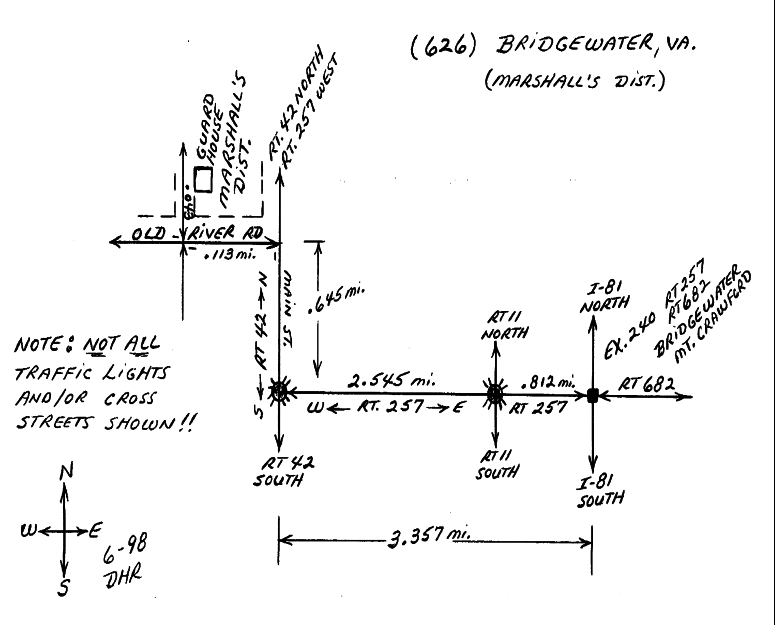 (626) BRIDGEWATER, VA.
(MARSHALL'S DIST.)
RT. 42 NORTH
RT. 257 WEST
GUARD
HOUSE
MARSHALL'S
DIST.
.043
OLD RIVER RD
.113 mi.
MAIN ST.
S ← RT 42 → N
.645 mi.
I-81
NORTH
EX. 240 RT 257
RT 682
BRIDGEWATER
MT. CRAWFORD
RT 11
NORTH
NOTE: NOT ALL
TRAFFIC LIGHTS
AND/OR CROSS
STREETS SHOWN!!
2.545 mi.
.812 mi.
RT 682
W ← RT. 257 → E
RT 257
RT 42
SOUTH
RT 11
SOUTH
I-81
SOUTH
N
W E
S
6-98
DHR
3.357 mi.